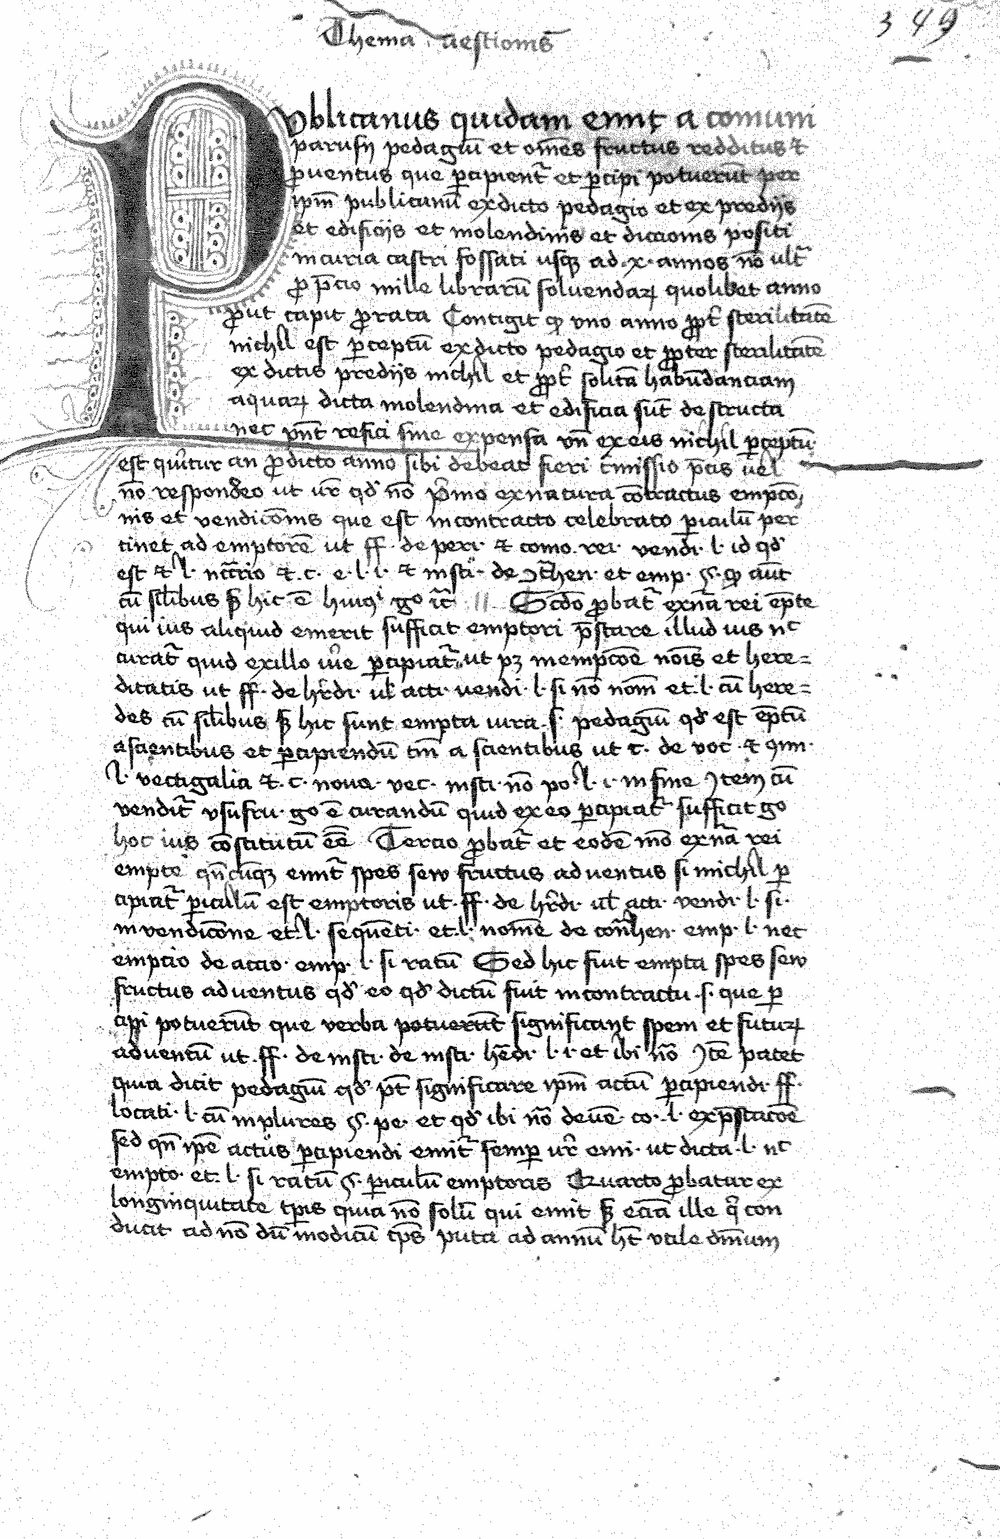 349
Thema questionis
Publicanus quidam emit a comuni
parusij pedagiū et om̄es fructus redditus et
ꝓventus que ꝑcipient᷑ et ꝑcipi potuerūt per
ip̄m publicanū ex dicto pedagio et ex predijs
et edificijs et molendinis et diccionis positi
in curia castri fossati usqꝫ ad .x. annos nō ult᷑
ꝓ p̄cio mille librarū solvendaꝝ quolibet anno
ꝓut capit ꝓ rata Contigit ꝙ uno anno ꝓpt᷑ sterilitatē
nichil est ꝑceptū ex dicto pedagio et ꝓpter sterilitatē
ex dictis predijs nichil et ꝓpt᷑ solitā habūdanciam
aquaꝝ dicta molendina et edificia sūt destructa
nec pn̄t refici sine expensa vn̄ ex eis nichil ꝑceptū
est queritur an ꝓ dicto anno sibi debeat fieri remissio p̄cis vel
nō respondeo ut vr̄ qđ nō primo ex natura cōtractus empcō
nis et vendicōnis que est in contracto celebrato ꝑiculū per
tinet ad emptorē ut ff. de peri. et como. rei. vendi. l. id qđ
est et l. nec̄rio et .c. e. l. i. et insti. de ꝯt̄hen. et emp. §. ꝙ aut̄
cū sil̄ibus sꝫ hic ē huiꝰ go ic̄ Scdō ꝓbat᷑ ex nā rei ēpte
qui ius aliquid emerit sufficit emptori p̄stare illud ius nc
curat᷑ quid ex illo iure ꝑcipiat᷑ ut pꝫ in empcōe nōis et here=
ditatis ut ff. de hr̄di. ul̄ acti. vendi. l. si nō nom̄ et. l. cū here=
des cū sil̄ibus sꝫ hic sunt empta iura .s. pedagiū qđ est ēptū
a scientibus et ꝑcipiendū tm̄ a scientibus ut .c. de voc. et
l. vectigalia et .c. nova. vec. insti. nō po. l. i. in fine Item cū
vendit᷑ usufru. go ē curandū quid ex eo ꝑcipiat᷑ sufficit go
hoc ius cōstitutū ēē Tercio ꝓbat᷑ et eodē mō ex nā rei
empte qn̄cūqꝫ emit᷑ spes seu fructus adventus si nichil ꝑ
cipiat᷑ ꝑiculū est emptoris ut. ff. de hr̄di. ul̄ acti. vendi. l. si.
in vendicōne et. l. sequēti. et. l. nom̄e de con̄hen. emp. l. nec
empcio de accio. emp. l. si ratū Sed hic fuit empta spes seu
fructus adventus qđ eo qđ dictū fuit in contractu .s. que ꝑ
cipi potuerūt que verba potuerūt significant spem et futuꝝ
adventū ut. ff. de insti. de insti. hēdi. l. i. et ibi nō Itē patet
quia dicit pedagiū qđ pt̄ significare ip̄m actū ꝑcipiendi. ff.
locati. l. cū in plures §. pe. et qđ ibi nō devē. co. l. ex p̄stacōe
sed qn̄ ip̄e actus ꝑcipiendi emit᷑ semꝑ vr̄ emi. ut dicta. l. nc
empto. et. l. si ratū §. ꝑiculū emptoris Quarto ꝓbatur ex
longinquitate tꝑis quia nō solū qui emit sꝫ eciā ille qi con
ducit ad nō dū modicū tp̄s puta ad annū hēt utile dn̄ium